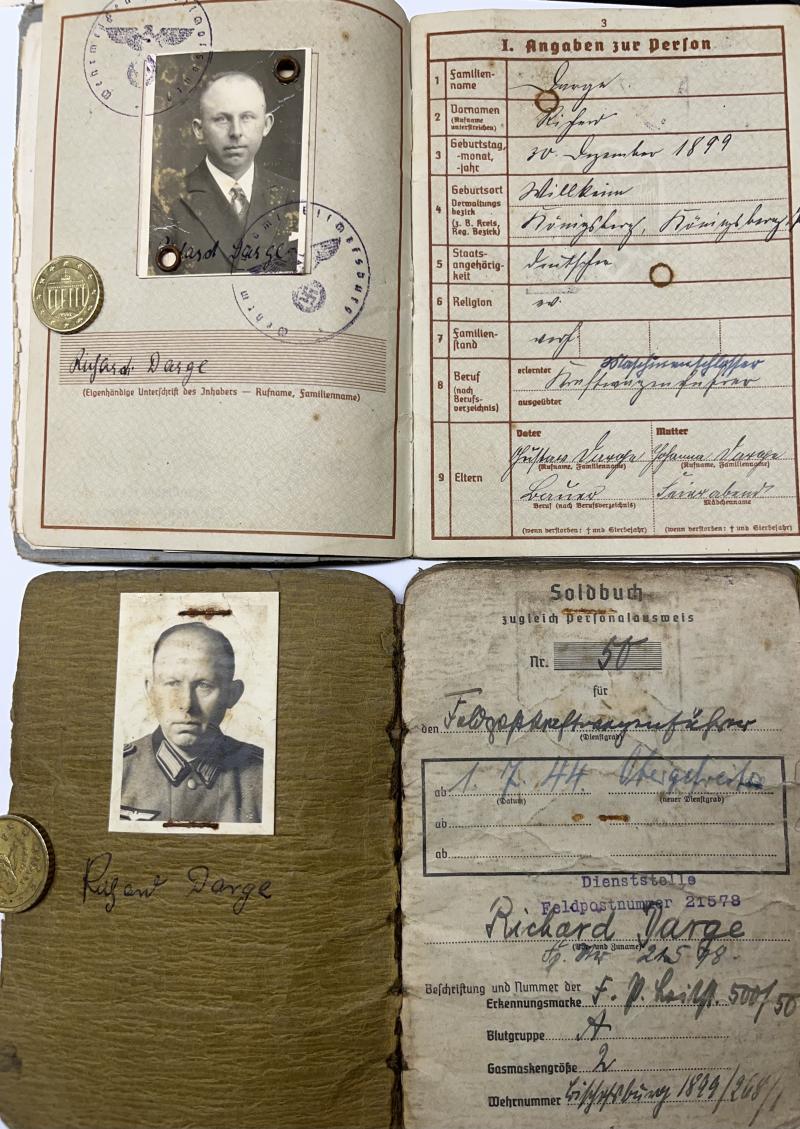 Richard Darge
Richard Darge
(Eigenhändige Unterschrift des Inhabers — Rufname, Familienname)
3
I. Angaben zur Person
1 Familien-
name
Darge
2 Vornamen
(Rufname
unterstreichen)
Richard
3 Geburtstag,
-monat,
-jahr
30. Dezember 1899
4 Geburtsort
Verwaltungs
bezirk
(z. B. Kreis,
Reg. Bezirk)
Willkeim
Königsberg, Königsberg
5 Staats-
angehörig-
keit
deutscher
6 Religion
ev.
7 Familien-
stand
verh.
8 Beruf
(nach
Berufs-
verzeichnis)
erlernter
Maschinenschlosser
Kraftwagenführer
ausgeübter
9 Eltern
Vater Mutter
Gustav Darge Johanna Darge
(Rufname, Familienname) (Rufname, Familienname)
Bauer Feierabend
Beruf (nach Berufsverzeichnis) Mädchenname
(wenn verstorben: † und Sterbejahr) (wenn verstorben: † und Sterbejahr)
Richard Darge
Soldbuch
zugleich Personalausweis
Nr. 50
für
den Feldpostkraftwagenführer
(Dienstgrad)
ab 1. 7. 44. Obergefreiter
(Datum) (neuer Dienstgrad)
ab
ab
Dienststelle
Feldpostnummer 21578
Richard Darge
(Vor- und Zuname)
Beschriftung und Nummer der
Erkennungsmarke F. P. 500/50
Blutgruppe A
Gasmaskengröße 2
Wehrnummer Bischofsburg 1899/268/1